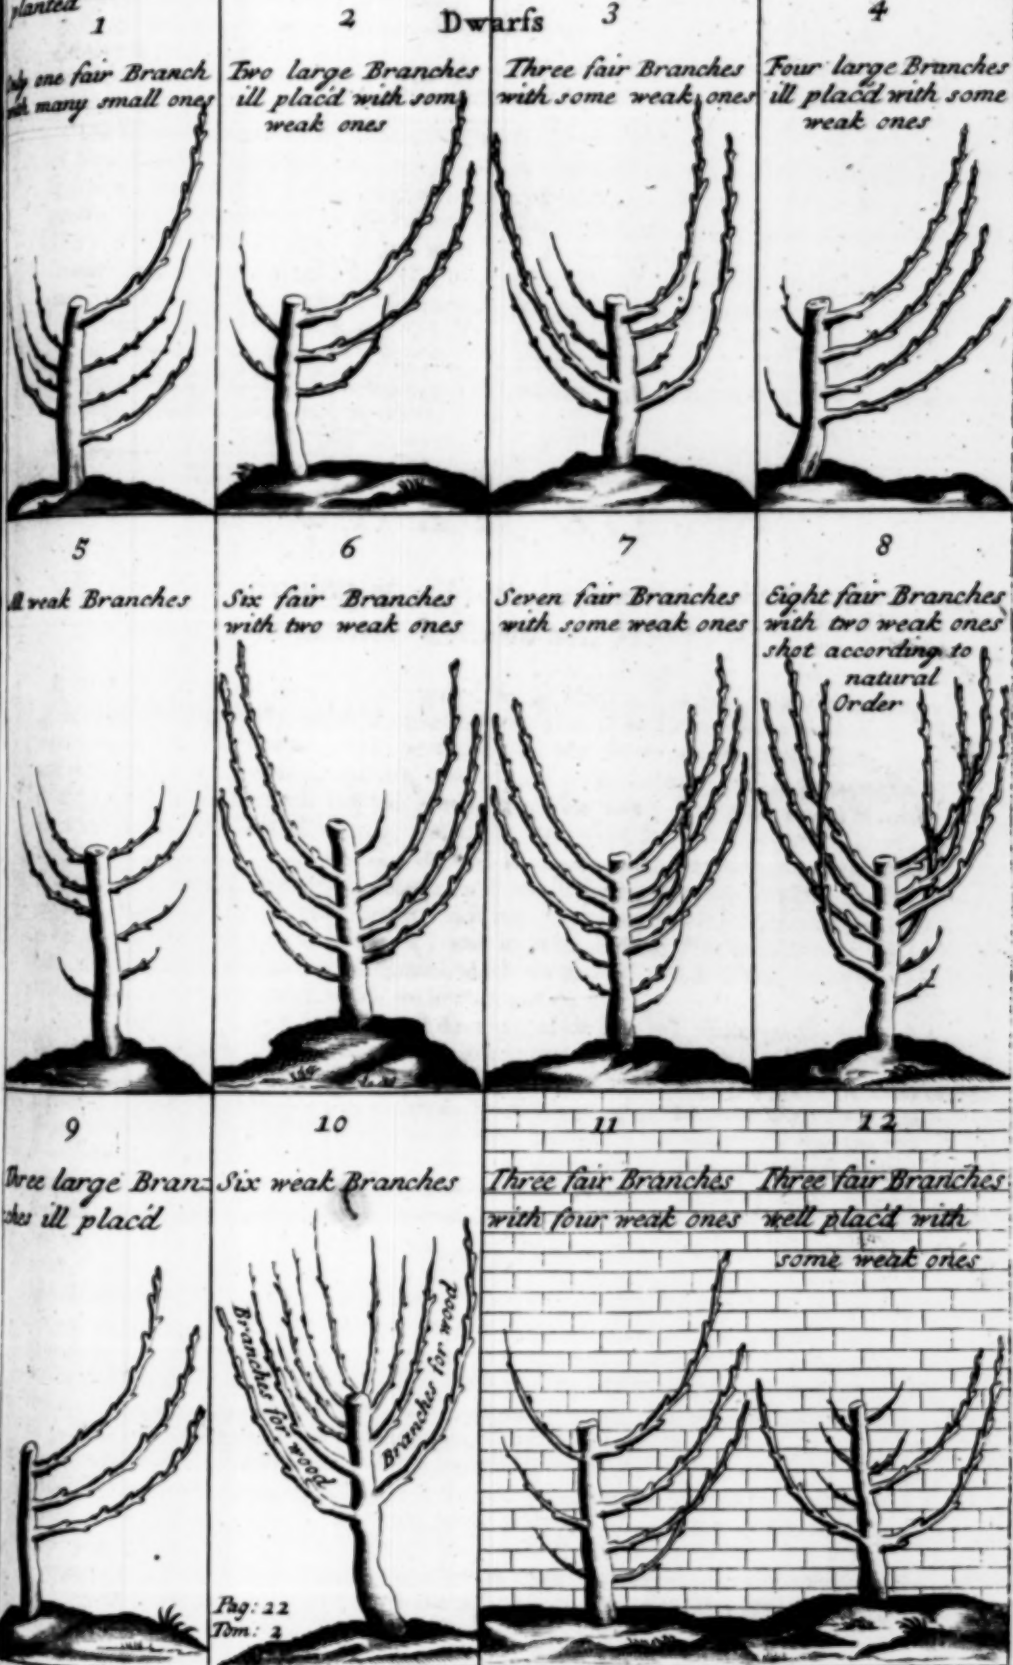 planted
Dwarfs
1
only one fair Branch
with many small ones
2
Two large Branches
ill plac'd with som
weak ones
3
Three fair Branches
with some weak ones
4
Four large Branches
ill plac'd with some
weak ones
5
All weak Branches
6
Six fair Branches
with two weak ones
7
Seven fair Branches
with some weak ones
8
Eight fair Branches
with two weak ones
shot according to
natural
Order
9
Three large Bran=
ches ill plac'd
10
Six weak Branches
Branches for wood
Branches for wood
Pag: 22
Tom: 2
11
Three fair Branches
with four weak ones
12
Three fair Branches
well plac'd with
some weak ones